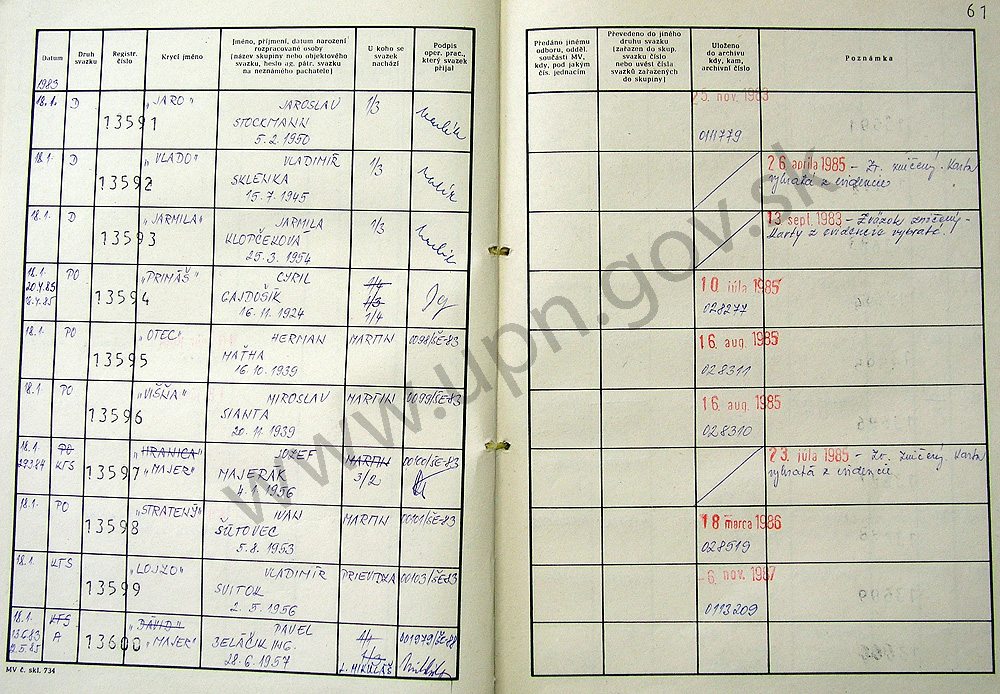 61
Datum
Druh svazku
Registr. číslo
Krycí jméno
Jméno, příjmení, datum narození
rozpracované osoby
(název skupiny nebo objektového
svazku, heslo sig. pátr. svazku
na neznámého pachatele)
U koho se
svazek
nachází
Podpis
oper. prac.,
který svazek
přijal
Předáno jinému
odboru, odděl.
součásti MV,
kdy, pod jakým
čís. jednacím
Převedeno do jiného
druhu svazku
(zařazen do skup.
svazku číslo
nebo uvést čísla
svazků zařazených
do skupiny)
Uloženo
do archivu
kdy, kam,
archivní číslo
Poznámka
1983
18.1. D 13591 "JARO" JAROSLAV 1/3
STOCKMANN
5.2.1950
25. nov. 1983
0111779
18.1. D 13592 "VLADO" VLADIMÍR 1/3
SKLENKA
15.7.1945
26. apríla 1985 - Zv. zničený. Karta
vybratá z evidencie
18.1. D 13593 "JARMILA" JARMILA 1/3
KLOPČEKOVÁ
25.3.1954
13. sept. 1983 - Zväzok zničený -
Karty z evidencie vybraté.
18.1. PO 13594 "PRIMÁŠ" CYRIL 1/4
20.4.83 GAJDOŠÍK 1/3
16.11.1924 1/4
10. júla 1985
028277
18.1. PO 13595 "OTEC" HERMAN MARTIN 0098/ŠE-83
MAŤHA
16.10.1939
16. aug. 1985
028311
18.1. PO 13596 "VIŠŇA" MIROSLAV MARTIN 0099/ŠE-83
SIANTA
20.11.1939
16. aug. 1985
028310
18.1. PO 13597 "HRANICA" JOZEF MARTIN 00100/ŠE-83
KTS "MAJER" MAJERÁK 3/2
4.1.1956
23. júla 1985 - Zv. zničený. Karta
vybratá z evidencie
18.1. PO 13598 "STRATENÝ" IVAN MARTIN 00101/ŠE-83
ŠÚTOVEC
5.8.1953
18. marca 1986
028519
18.1. KTS 13599 "LOJZO" VLADIMÍR PRIEVIDZA 00103/ŠE-83
SVITOK
2.5.1956
-6. nov. 1987
0113209
18.1. KTS 13600 "DÁVID" PAVEL 1/1
13.6.83 A "MAJER" BELÁČIK ING.
28.6.1957 L. MIKULÁŠ
MV č. skl. 734
www.upn.gov.sk